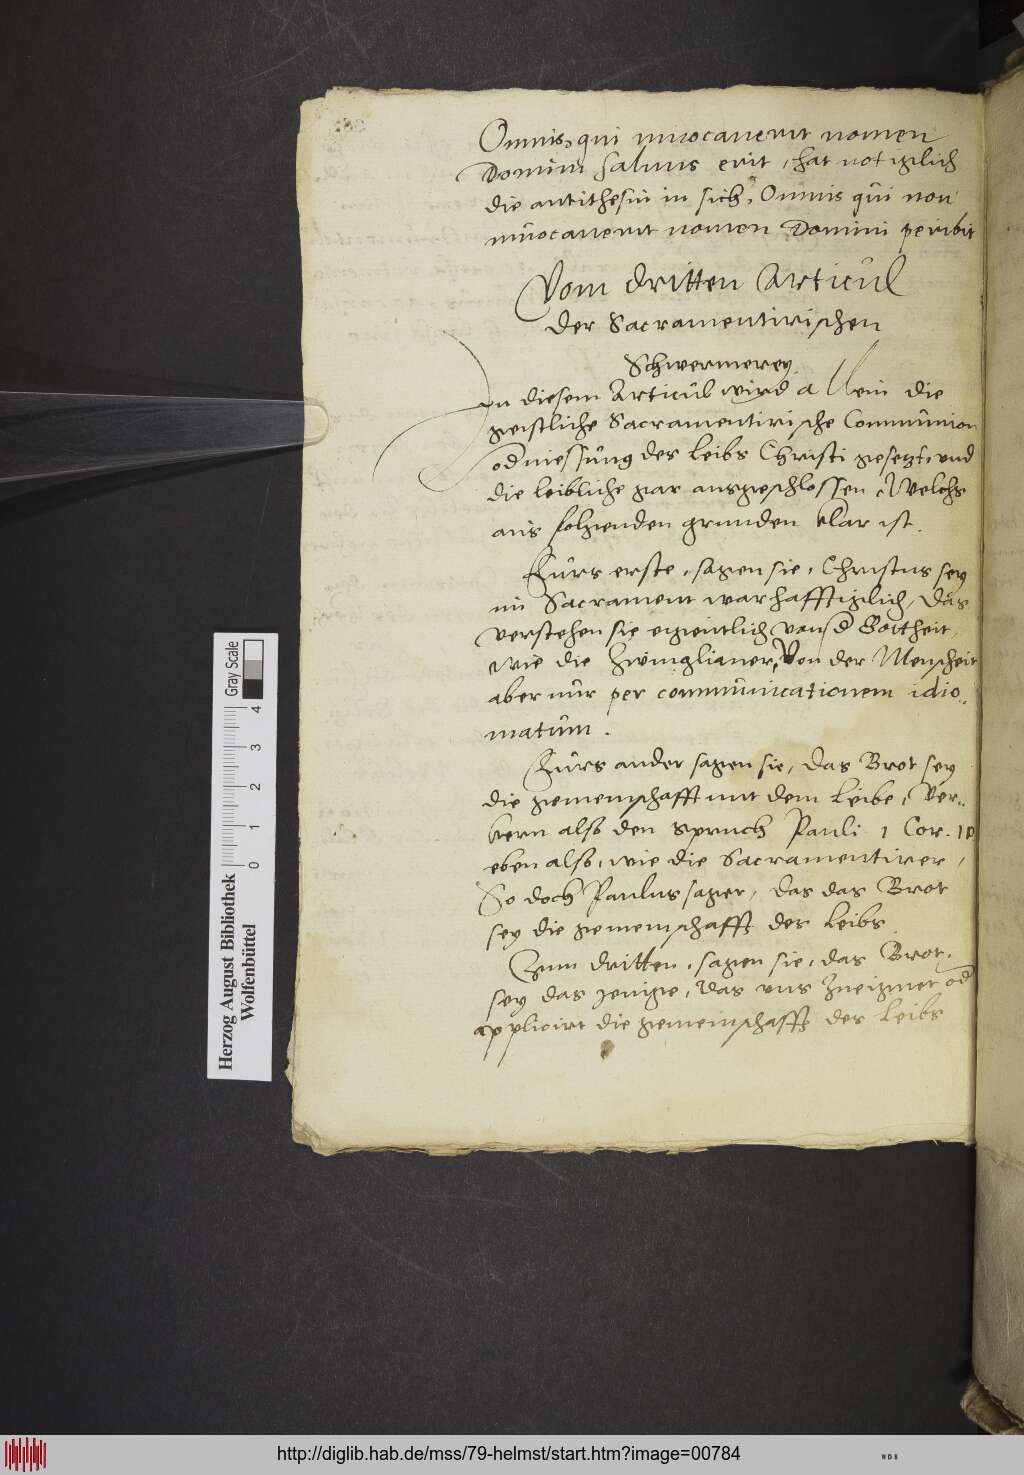 Omnis, qui invocaverit nomen
Domini salvus erit, hat notiglich
die antithesin in sich, Omnis qui non
invocaverit nomen Domini peribit
Vom dritten Articul
der Sacramentirischen
Schwermerey.
In diesem Articul wird allein die
geistliche Sacramentirische Communion
od niessung des leibs Christi gesetzt, und
die leibliche gar ausgeschlossen, Welchs
aus folgenden grunden klar ist.
Furs erste, sagen sie, Christus sey
im Sacrament warhafftiglich, das
verstehen sie eigentlich von d Gottheit,
wie die Zwinglianer, Von der Menscheit
aber nur per communicationem idio..
matum.
Furs ander sagen sie, das Brot sey
die gemeinschafft mit dem leibe, Ver..
kern also den spruch Pauli 1 Cor. 10
eben also, wie die Sacramentirer,
So doch Paulus saget, das das Brot
sey die gemeinschafft des leibs.
Zum dritten, sagen sie, das Brot,
sey das jenige, das uns zueignet od
applicirt die gemeinschafft des leibs
Herzog August Bibliothek
Wolfenbüttel
0 1 2 3 4
Gray Scale
http://diglib.hab.de/mss/79-helmst/start.htm?image=00784
WDB